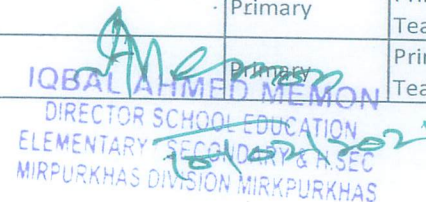 Primary
Tea
Primary
Tea
IQBAL AHMED MEMON
DIRECTOR SCHOOL EDUCATION
ELEMENTARY SECONDARY & H.SEC
MIRPURKHAS DIVISION MIRKPURKHAS